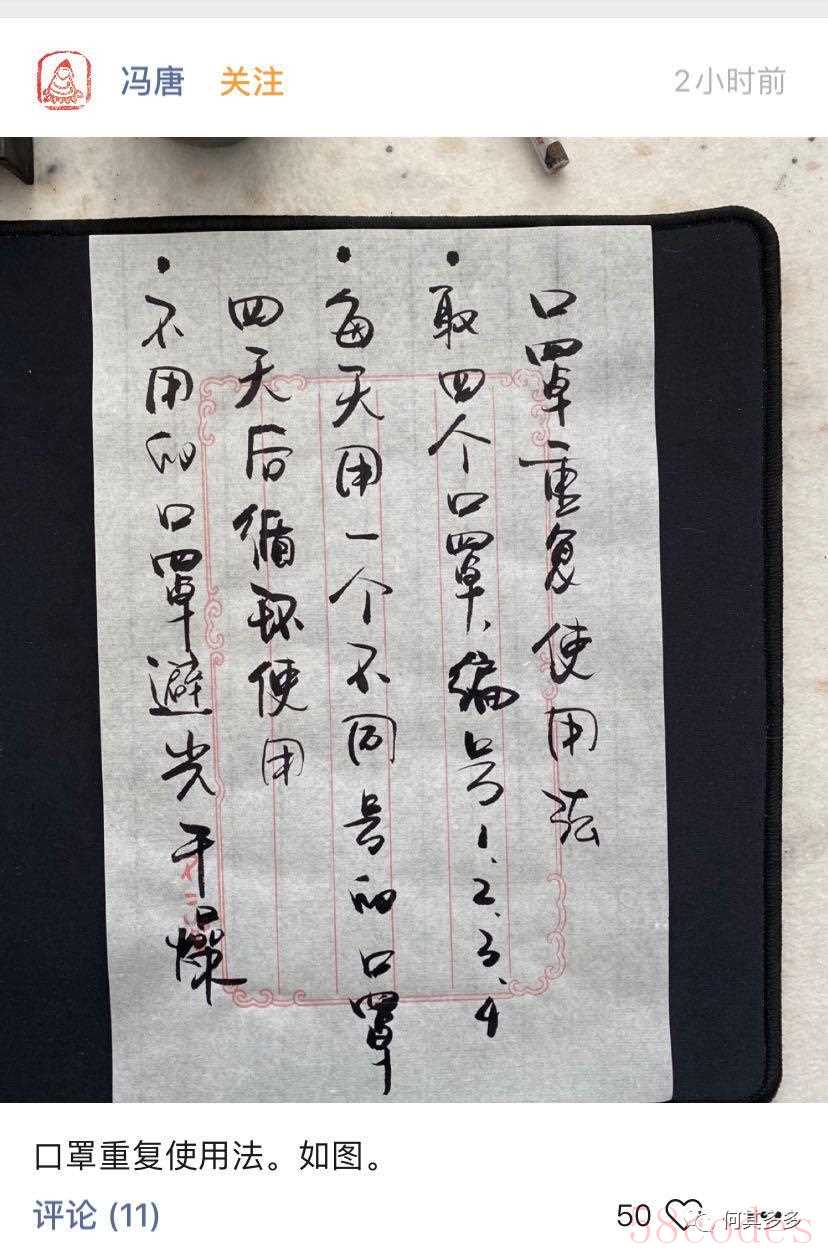 冯唐 关注 2小时前
口罩重复使用法
·取四个口罩、编号1、2、3、4
·每天用一个不同号的口罩
四天后循环使用
·不用的口罩避光干燥
口罩重复使用法。如图。
评论 (11) 50
何其多多
58codes